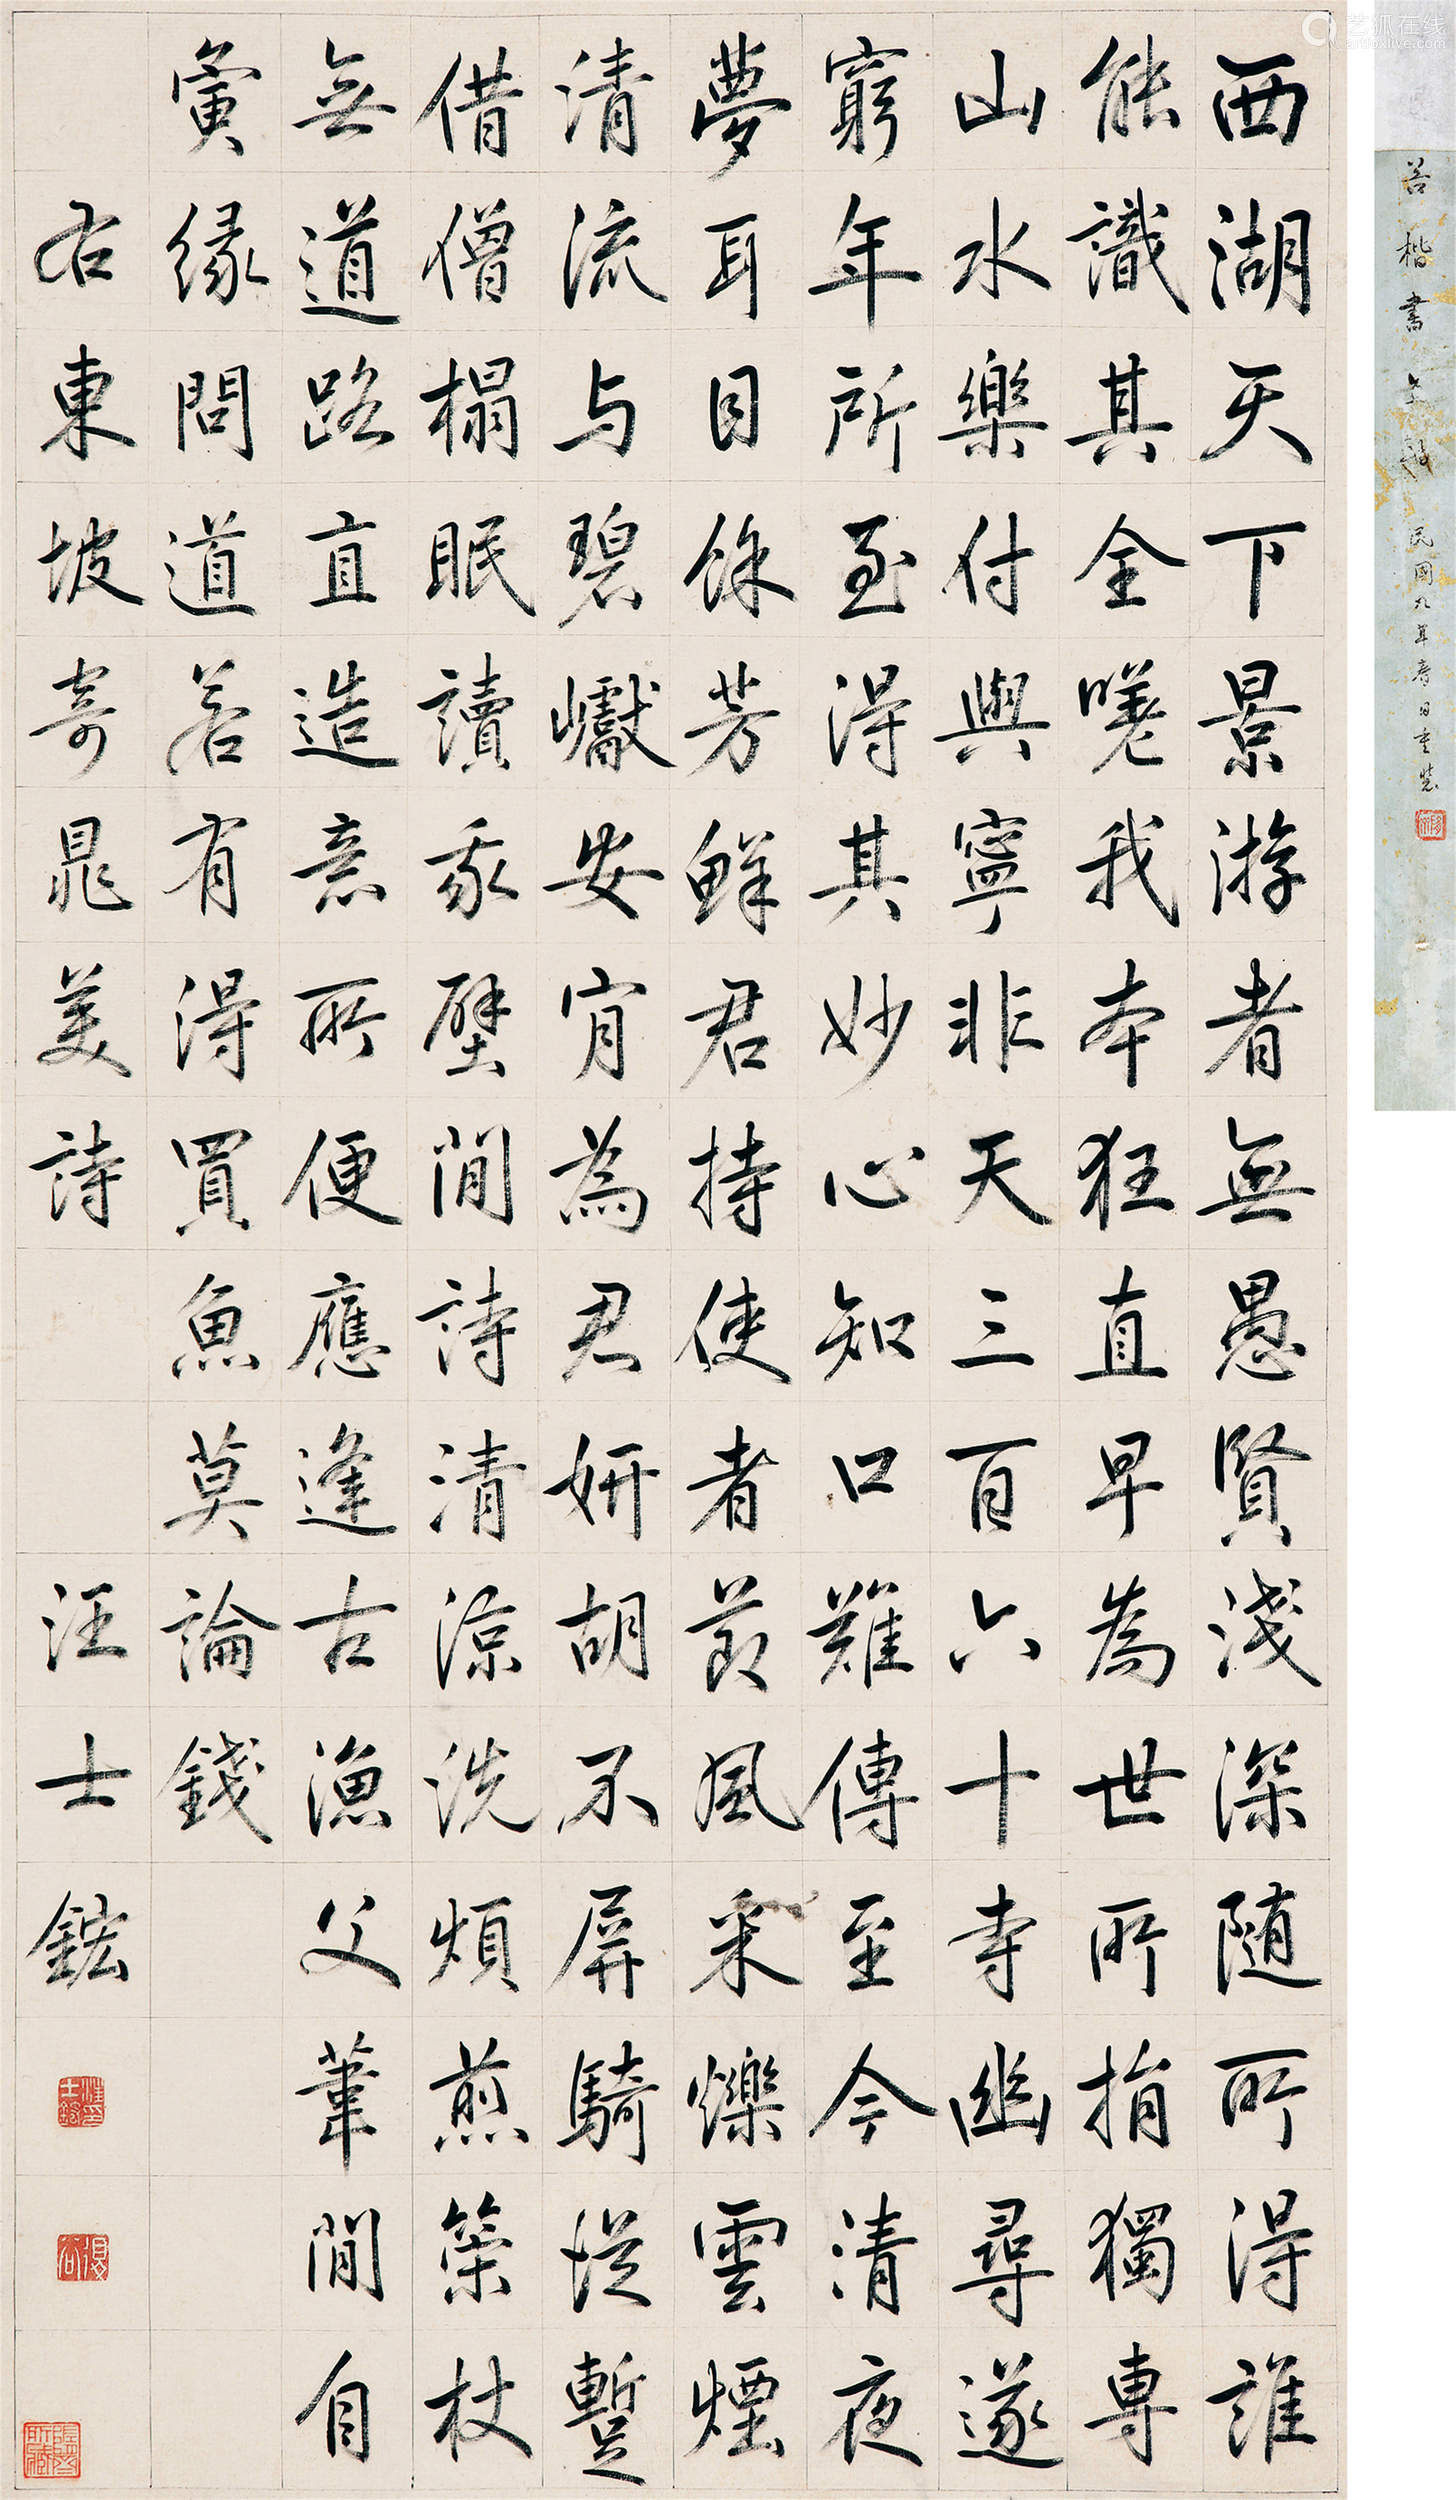 西湖天下景游者無愚賢淺深隨所得誰
能識其全嗟我本狂直早為世所捐獨專
山水樂付與寧非天三百六十寺幽尋遂
窮年所至得其妙心知口難傳至今清夜
夢耳目餘芳鮮君持使者節風采爍雲煙
清流与碧巘安肯為君妍胡不屏騎從蹔
借僧榻眠讀我壁間詩清涼洗煩煎策杖
無道路直造意所便應逢古漁父葦間自
寅緣問道若有得買魚莫論錢
右東坡寄晁美詩
汪士鋐
楷書
民國九年春日重裝
艺狐在线
artfoxlive.com